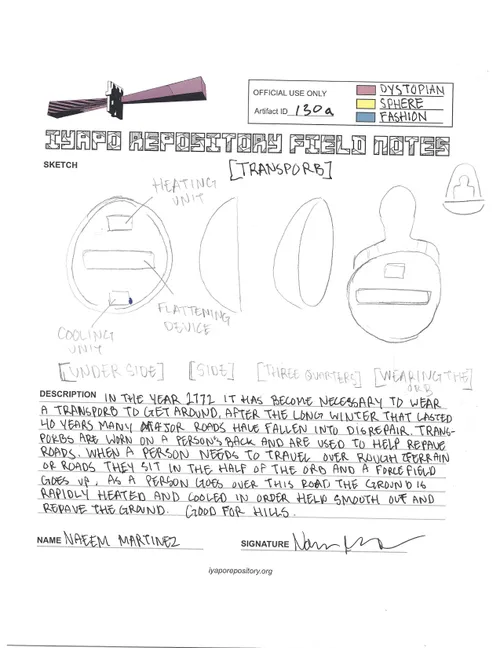 OFFICIAL USE ONLY
Artifact ID 130a
DYSTOPIAN
SPHERE
FASHION
IYAPO REPOSITORY FIELD NOTES
SKETCH
[TRANSPORB]
HEATING
UNIT
FLATTENING
DEVICE
COOLING
UNIT
[UNDER SIDE] [SIDE] [THREE QUARTERS] [WEARING THE
ORB]
DESCRIPTION IN THE YEAR 2772 IT HAS BECOME NECESSARY TO WEAR
A TRANSPORB TO GET AROUND, AFTER THE LONG WINTER THAT LASTED
40 YEARS MANY MAJOR ROADS HAVE FALLEN INTO DISREPAIR. TRANS-
PORBS ARE WORN ON A PERSON'S BACK AND ARE USED TO HELP REPAVE
ROADS. WHEN A PERSON NEEDS TO TRAVEL OVER ROUGH TERRAIN
OR ROADS THEY SIT IN THE HALF OF THE ORD AND A FORCEFIELD
GOES UP, AS A PERSON GOES OVER THIS ROAD THE GROUND IS
RAPIDLY HEATED AND COOLED IN ORDER HELP SMOOTH OUT AND
REPAVE THE GROUND. GOOD FOR HILLS.
NAME NAEEM MARTINEZ SIGNATURE
iyaporepository.org